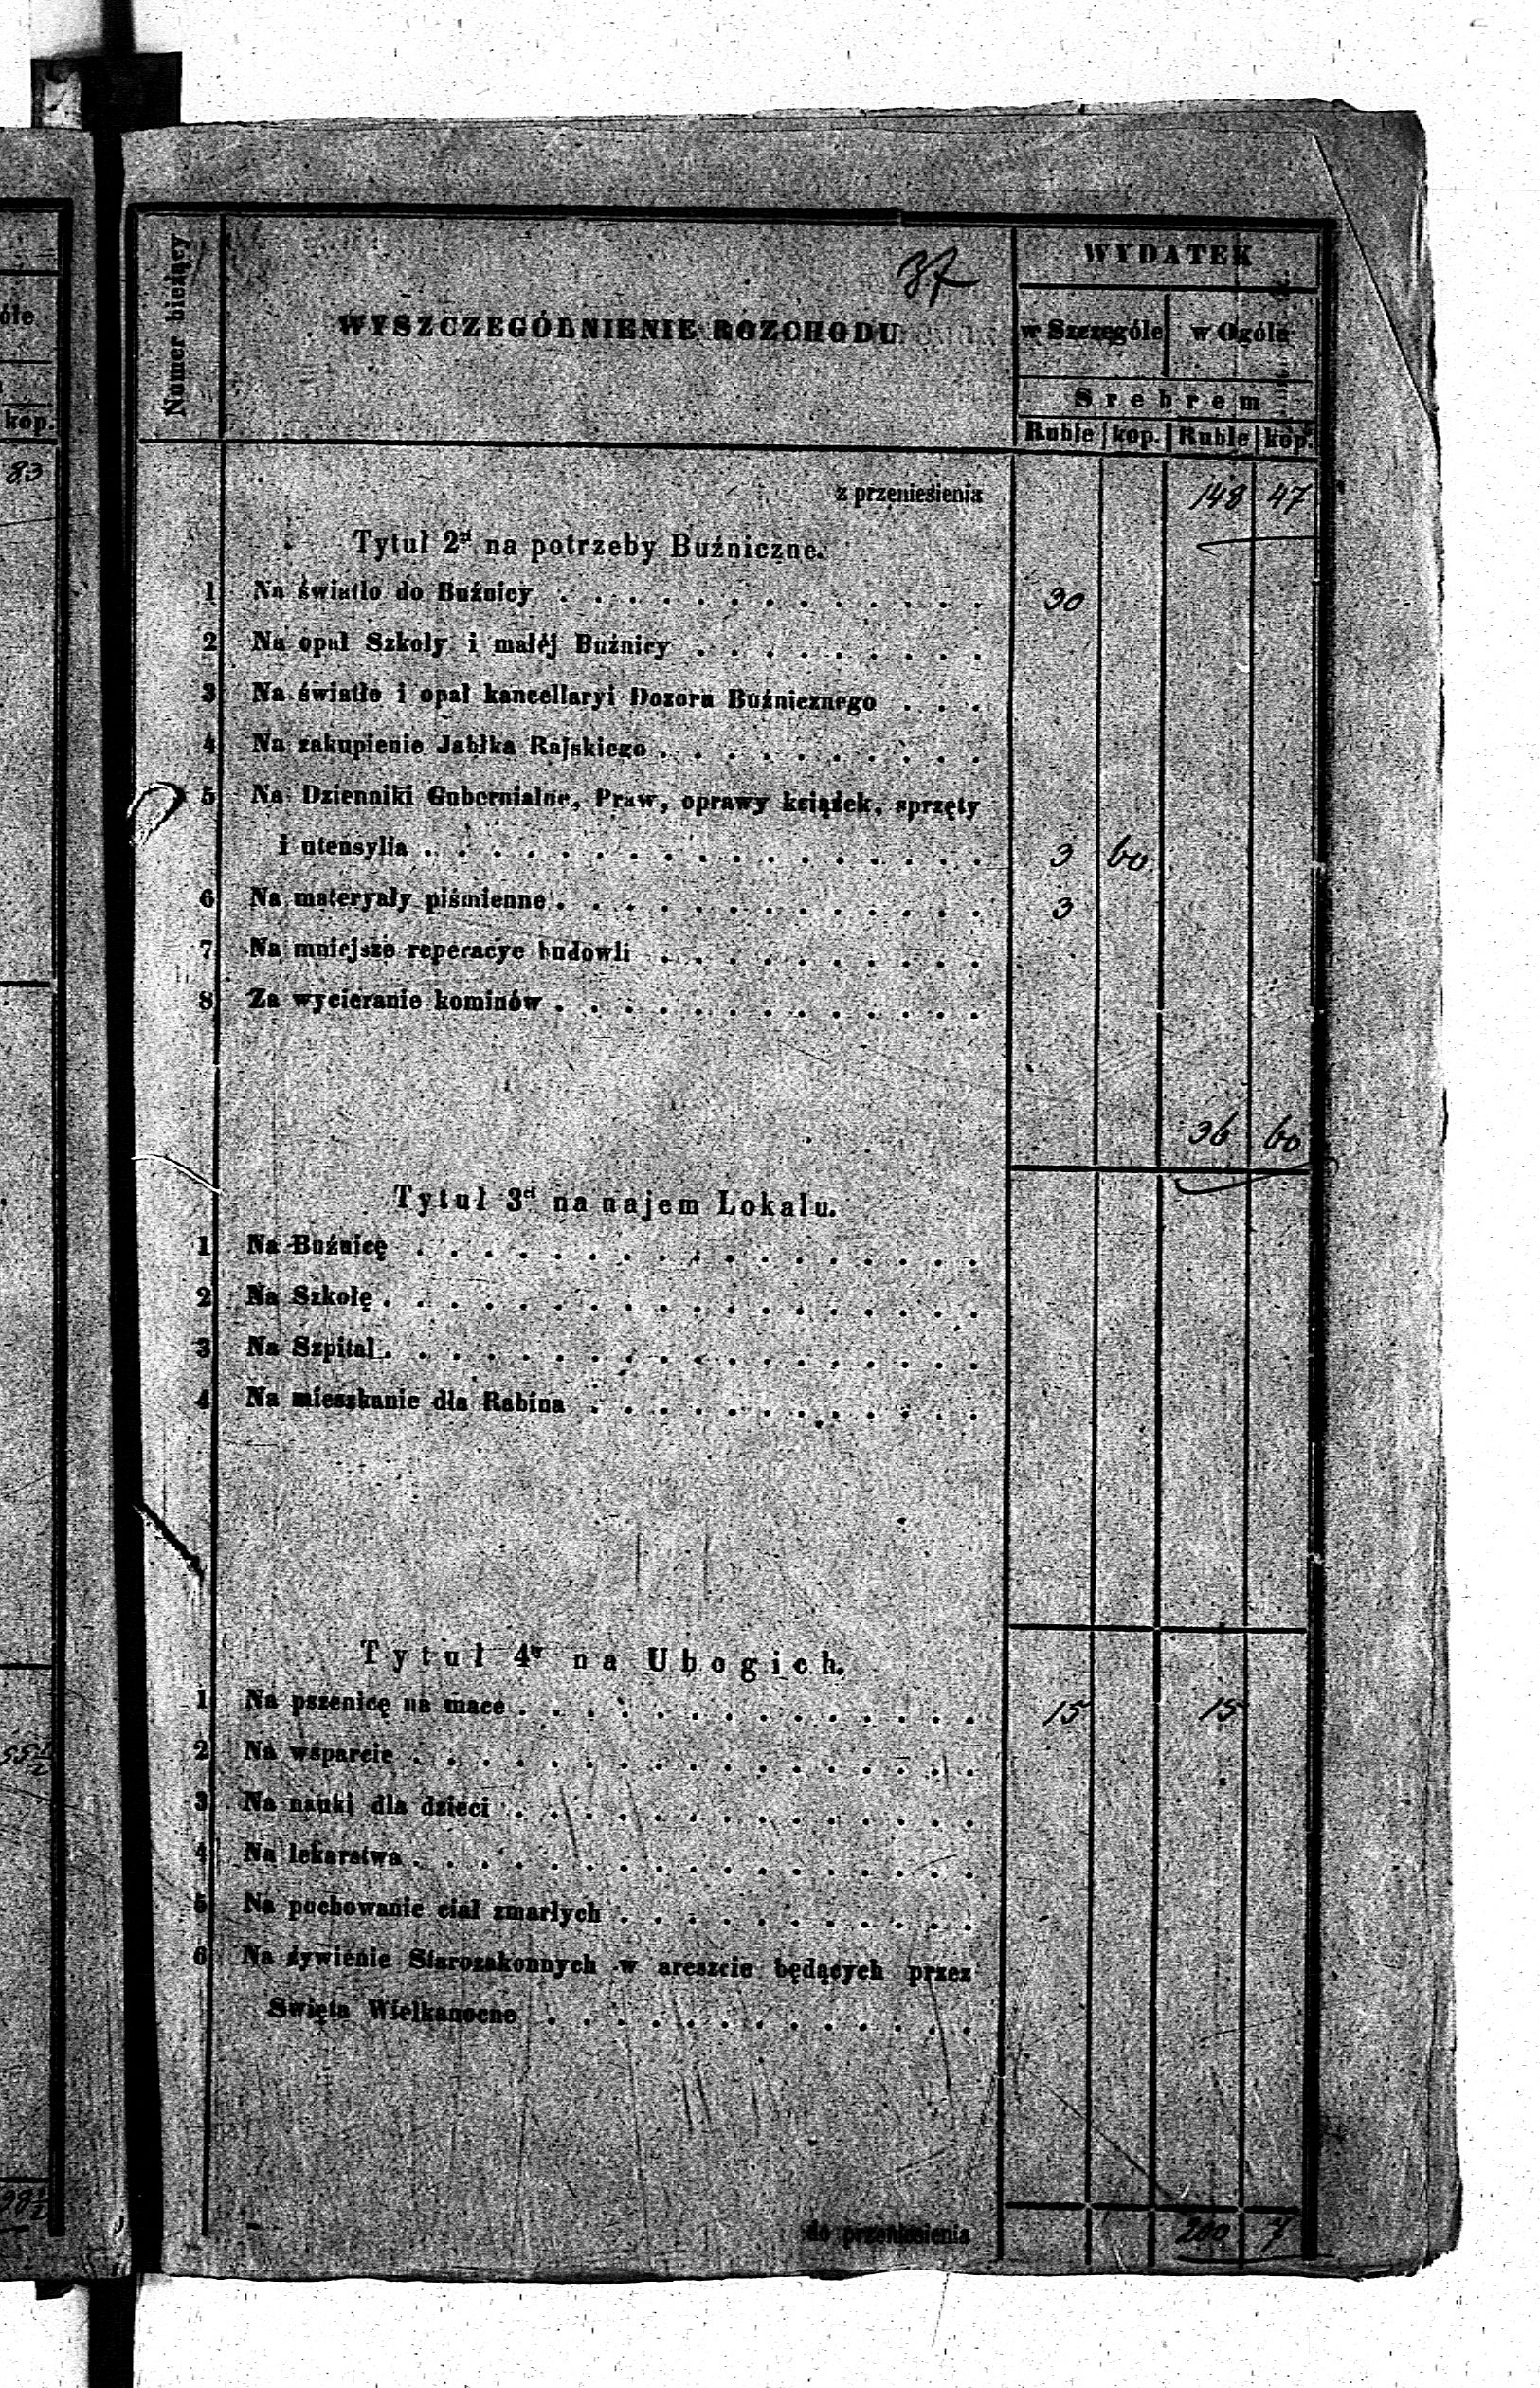 óle
kop.
83
55½
99½
37
Numer bieżący
WYSZCZEGÓLNIENIE ROZCHODU
WYDATEK
w Szczególe w Ogóle
Srebrem
Ruble kop. Ruble kop.
z przeniesienia 148 47
Tytuł 2gi na potrzeby Buźniczne.
1 Na światło do Buźnicy 30
2 Na opał Szkoły i małéj Buźnicy
3 Na światło i opał kancellaryi Dozoru Buźnicznego
4 Na zakupienie Jabłka Rajskiego
5 Na Dzienniki Gubernialne, Praw, oprawy książek, sprzęty
i utensylia 3 60
6 Na materyały piśmienne 3
7 Na mniejsze reperacye budowli
8 Za wycieranie kominów
36 60
Tytuł 3ci na najem Lokalu.
1 Na Buźnicę
2 Na Szkołę
3 Na Szpital
4 Na mieszkanie dla Rabina
Tytuł 4ty na Ubogich.
1 Na pszenicę na mace 15 15
2 Na wsparcie
3 Na nauki dla dzieci
4 Na lekarstwa
5 Na pochowanie ciał zmarłych
6 Na żywienie Starozakonnych w areszcie będących przez
Święta Wielkanocne
do przeniesienia 200 7